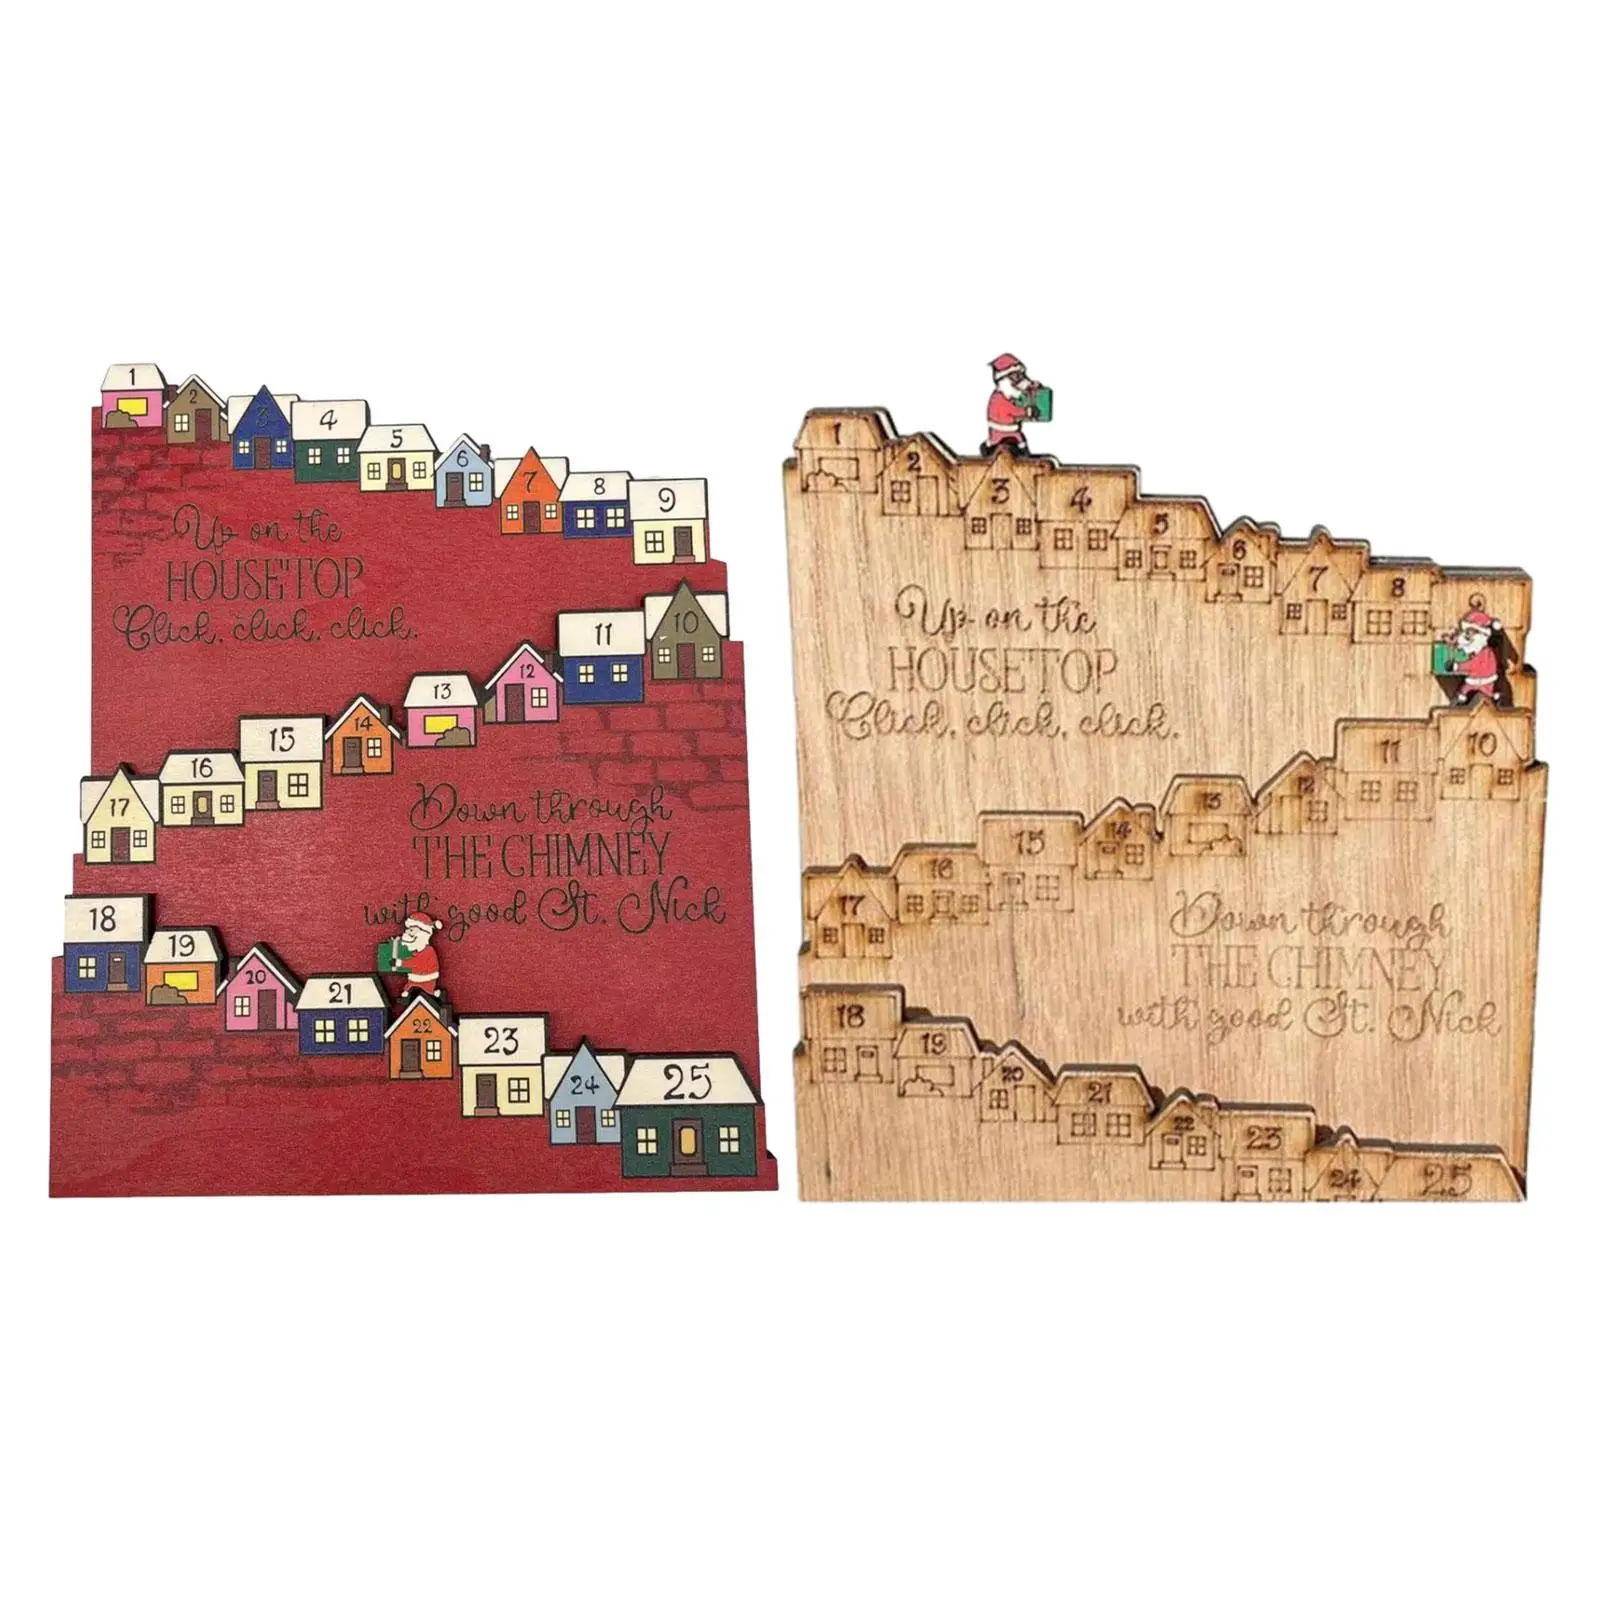 1
2
3
4
5
6
7
8
9
Up on the
HOUSETOP
Click, click, click.
10
11
12
13
14
15
16
17
Down through
THE CHIMNEY
with good St. Nick
18
19
20
21
22
23
24
25
1
2
3
4
5
6
7
8
Up on the
HOUSETOP
Click, click, click.
10
11
12
13
14
15
16
17
Down through
THE CHIMNEY
with good St. Nick
18
19
20
21
22
23
24
25